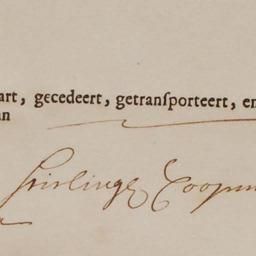 art, gecedeert, getransporteert, en
an
Stirlinge Coopm